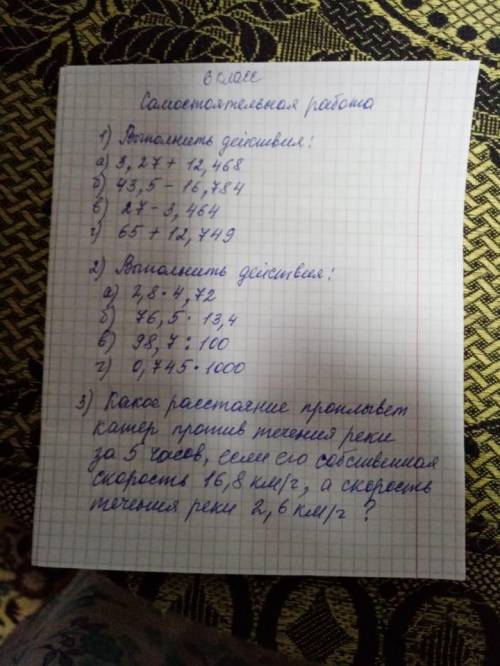 6 класс
Самостоятельная работа
1) Выполнить действия:
а) 3,27 + 12,468
б) 43,5 - 16,784
в) 27 - 3,464
г) 65 + 12,749
2) Выполнить действия:
а) 2,8 · 4,72
б) 76,5 · 13,4
в) 98,7 : 100
г) 0,745 · 1000
3) Какое расстояние проплывет
катер против течения реки
за 5 часов, если его собственная
скорость 16,8 км/г, а скорость
течения реки 2,6 км/г ?